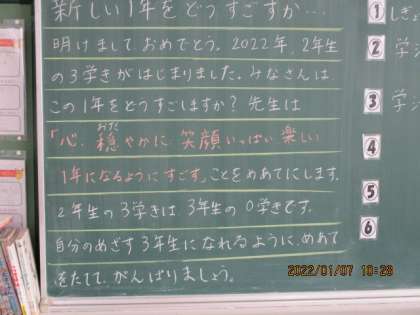 新しい1年をどうすごすか…
明けまして おめでとう。2022年。2年生
の3学きがはじまりました。みなさんは
この1年をどうすごしますか?先生は
「心 穏やかに 笑顔いっぱい 楽しい
おだ
1年になるようにすごす。」ことをめあてにします。
2年生の3学きは 3年生の0学きです。
自分のめざす3年生になれるように、めあて
をたてて、がんばりましょう。
1
2
3
4
5
6
2022/01/07